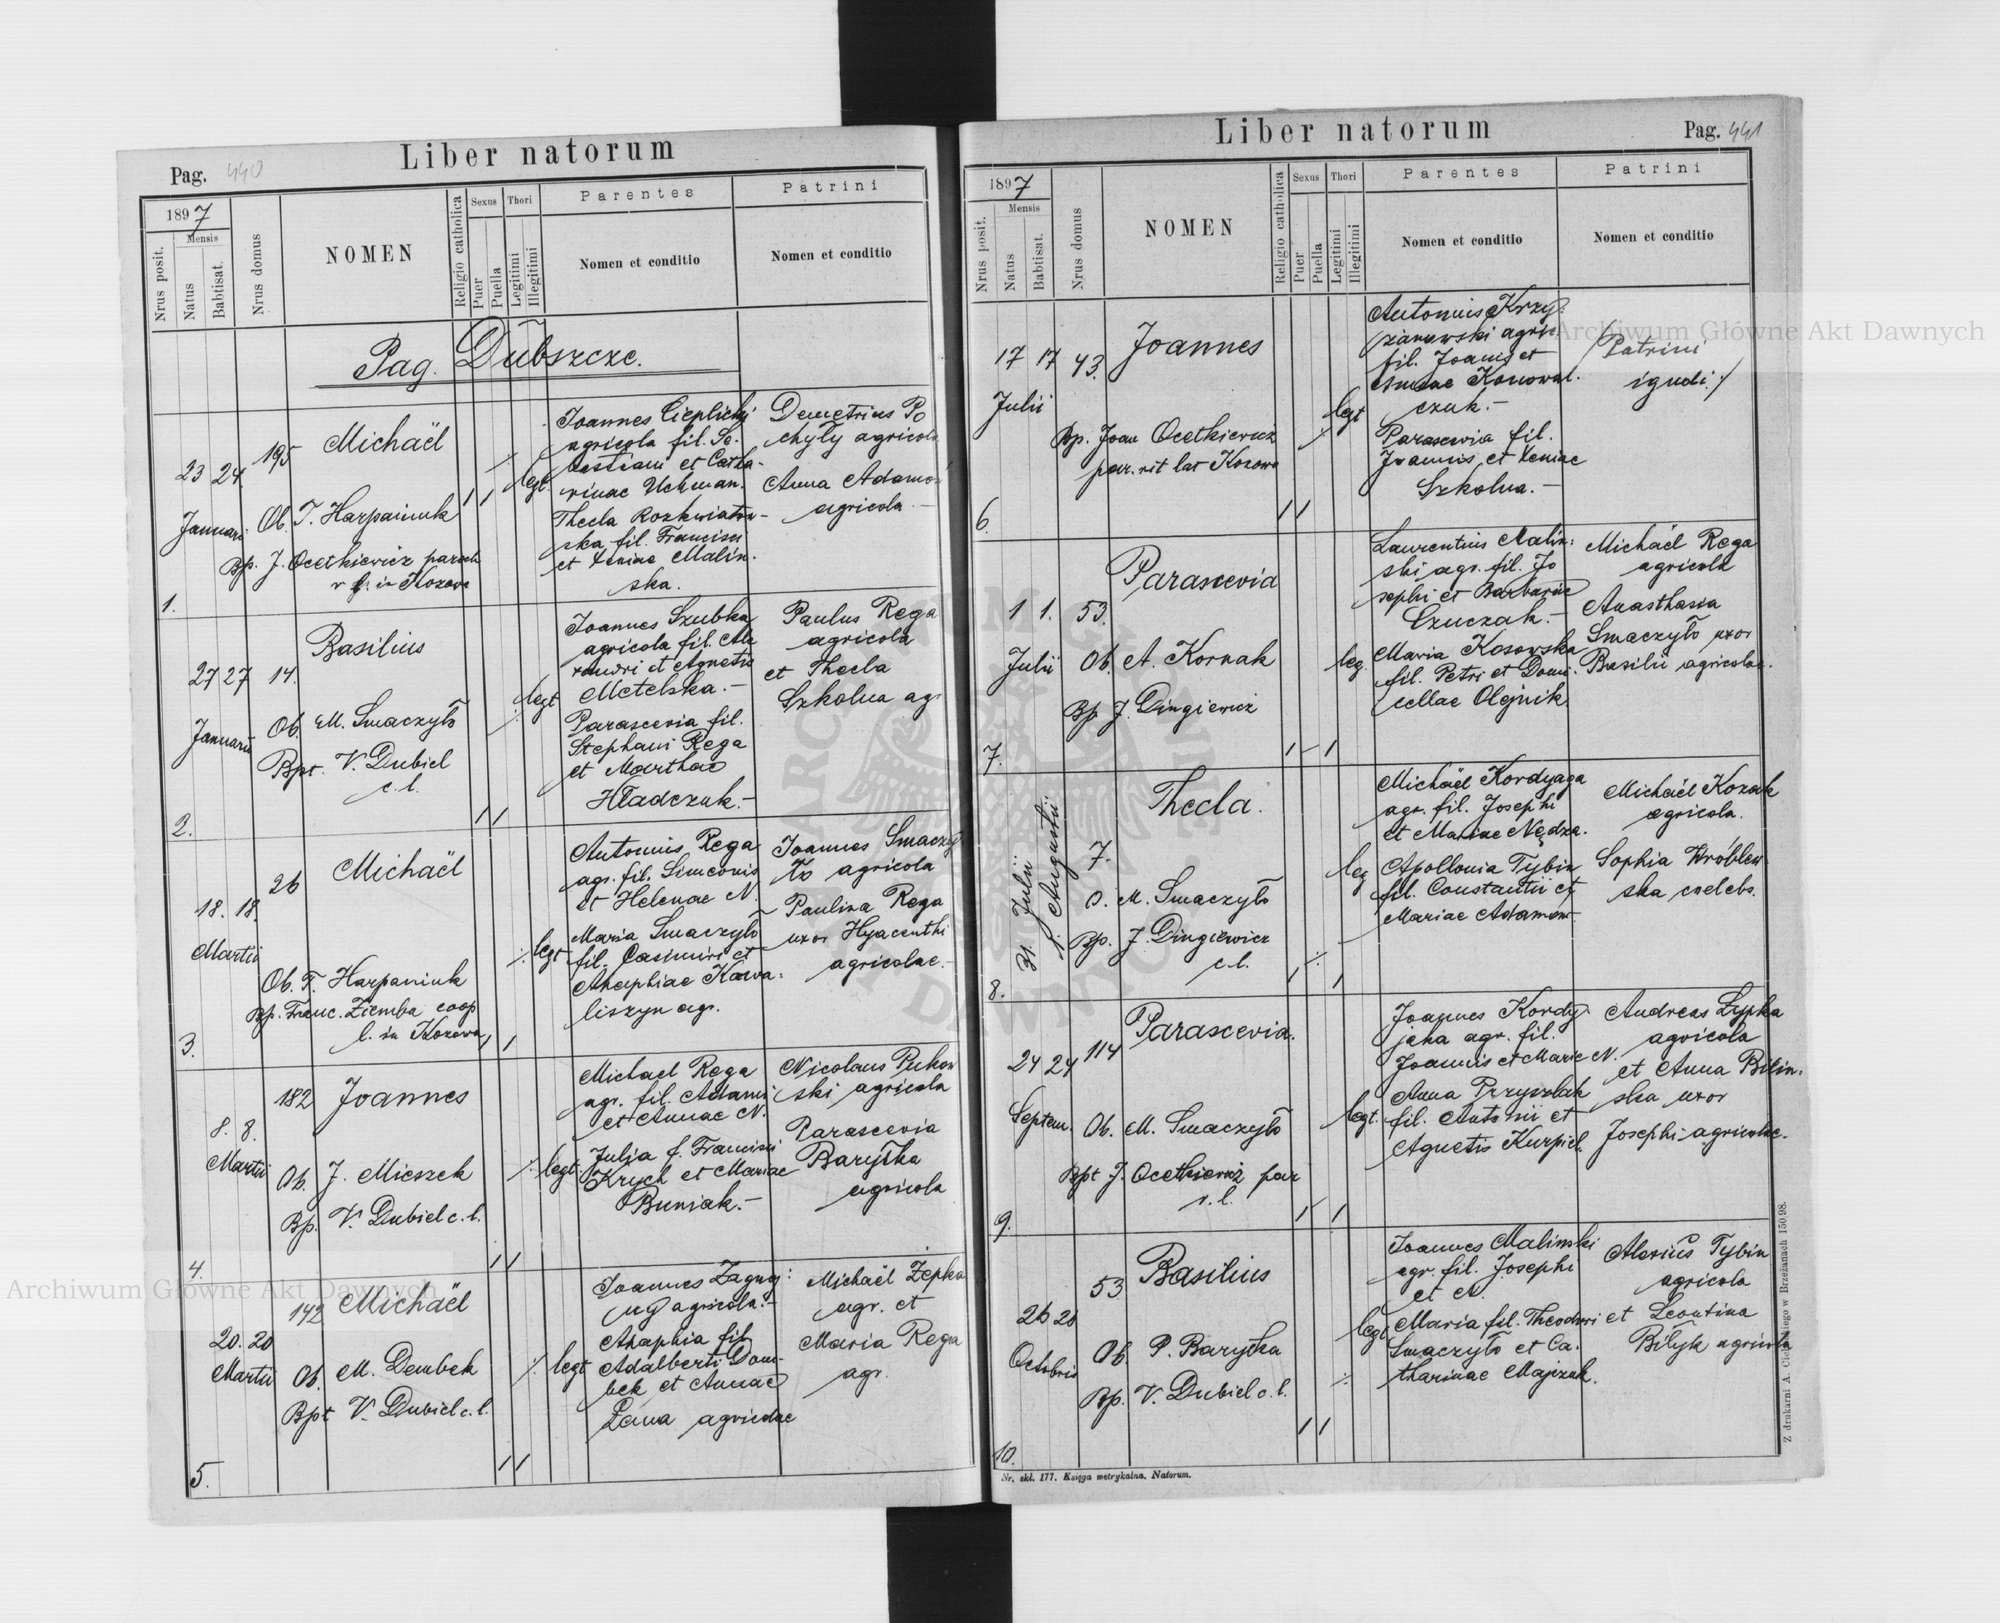 Pag. 440
Liber natorum
1897
Mensis
Nrus posit.
Natus
Babtisat.
Nrus domus
NOMEN
Religio catholica
Sexus
Puer
Puella
Thori
Legitimi
Illegitimi
Parentes
Nomen et conditio
Patrini
Nomen et conditio
Pag. Dubszcze.
1.
23 24
Januari
195
Michaël
Ob. T. Harpaniuk
Bp. J. Ocetkiewicz paroch
r. l. in Kozowa
legt.
Joannes Cieplicki
agricola fil. Se-
bastiani et Catha-
rinae Uchman.
Thecla Rozkwiatow-
ska fil. Francisci
et Xeniae Malin-
ska.
Demetrius Po
chyły agricola
Anna Adamów
agricola.
2.
27 27
Januarii
14.
Basilius
Ob. M. Smaczyło
Bpt. V. Dubiel
c. l.
legt
Joannes Szubka
agricola fil. Ale
xandri et Agnetis
Metelska.-
Parascevia fil.
Stephani Rega
et Marthae
Hładczuk.-
Paulus Rega
agricola
et Thecla
Szkolna agr
3.
18. 18.
Martii
26
Michaël
Ob. F. Harpaniuk
Bp. Franc. Ziemba coop
l. in Kozowa
legt
Antonius Rega
agr. fil. Simeonis
et Helenae N.
Maria Smaczyło
fil. Casimiri et
Ahaphiae Kowa-
liszyn agr.
Joannes Smaczy
ło agricola
Paulina Rega
uxor Hyacenthi
agricolae.-
4.
8. 8.
Martii
182
Joannes
Ob. J. Mieszek
Bp. V. Dubiel c. l.
legt.
Michael Rega
agr. fil. Adami
et Annae N.
Julja f. Francisci
Krych et Mariae
Buniak.-
Nicolaus Pukow
ski agricola
Parascevia
Baryłka
agricola
5.
20. 20
Martii
142
Michaël
Ob. M. Dembek
Bpt V. Dubiel c. l.
legt
Joannes
agricola.-
Ahaphia fil.
Adalberti Dom-
bek et Annae
agricolae
Michaël Zepka
agr. et
Maria Rega
agr.
Liber natorum
Pag. 441
1897
Mensis
Nrus posit.
Natus
Babtisat.
Nrus domus
NOMEN
Religio catholica
Sexus
Puer
Puella
Thori
Legitimi
Illegitimi
Parentes
Nomen et conditio
Patrini
Nomen et conditio
6.
17 17
Julii
43.
Joannes
Bp. Joan Ocetkiewicz
par. rit lat Kozowa
legt
Antonius Krzy-
żanowski agric.
fil. Joannis et
Annae Konowal-
czuk.-
Parascevia fil.
Joannis et Xeniae
Szkolna.-
Patrini
7.
1 1.
Julii
53.
Parascevia
Ob. A. Kornak
Bp J. Dingiewicz
leg.
Laurentius Malin-
ski agr. fil. Jo
sephi et Barbarae
Czuczak.-
Maria Kosowska
fil. Petri et Domi-
cellae Olejnik
Michaël Rega
agricola
Anasthasia
Smaczyło uxor
Basilii agricolae.
8.
31. Julii
1. Augustii
7.
Thecla.
O. M. Smaczyło
Bp. J. Dingiewicz
c. l.
leg
Michaël Kordyaga
agr. fil. Josephi
et Mariae Nędza.
Apollonia Tybin
fil. Constantii et
Mariae Adamow
Michaël Kozak
agricola.
Sophia Wróblew
ska coelebs.
9.
24 24
Septem.
114
Parascevia.
Ob. M. Smaczyło
Bpt J. Ocetkiewicz par
r. l.
legt.
Joannes Kordy
jaka agr. fil.
Joannis et Marie N.
Anna Przyszlak
fil. Antonii et
Agnetis Kurpiel.
Andreas Zypka
agricola
et Anna Bilin-
ska uxor
Josephi agricolae.
10.
26 26
Octobris
53
Basilius
Ob. P. Baryłka
Bp. V. Dubiel c. l.
legt
Joannes Malinski
agr. fil. Josephi
et N.
Maria fil. Theodori
Smaczyło et Ca-
tharinae Majczuk.
Alexius Tybin
agricola
et Leontina
Biłyk agricola
Nr. skł. 177. Księga metrykalna. Natorum.
Z drukarni A. Cie kiego w Brzeżanach 150 98.
Archiwum Główne Akt Dawnych
Archiwum Główne Akt Dawnych